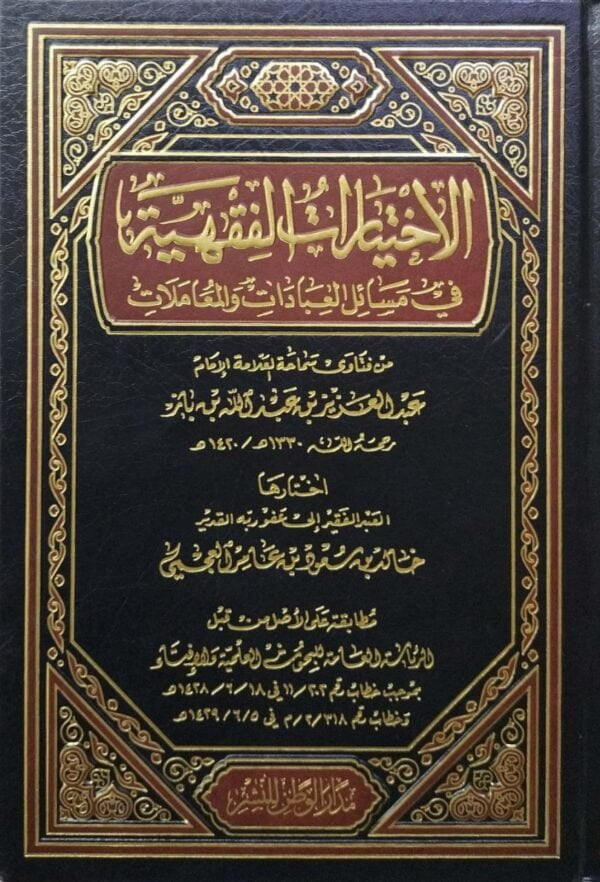 الاختيارات الفقهية
في مسائل العبادات والمعاملات
من فتاوى سماحة العلامة الإمام
عبد العزيز بن عبد الله بن باز
رحمه الله ١٣٣٠ھ / ١٤٢٠ھ
اختارها
العبد الفقير إلى عفو ربه القدير
خالد بن سعود بن عامر العجمي
مطابقة على الأصل من قبل
الرئاسة العامة للبحوث العلمية والإفتاء
بموجب خطاب رقم ١١/٢٠٣ في ١٤٢٨/٦/١٨ھ
وخطاب رقم ٢/٣١٨/م في ١٤٢٩/٦/٥ھ
مدار الوطن للنشر